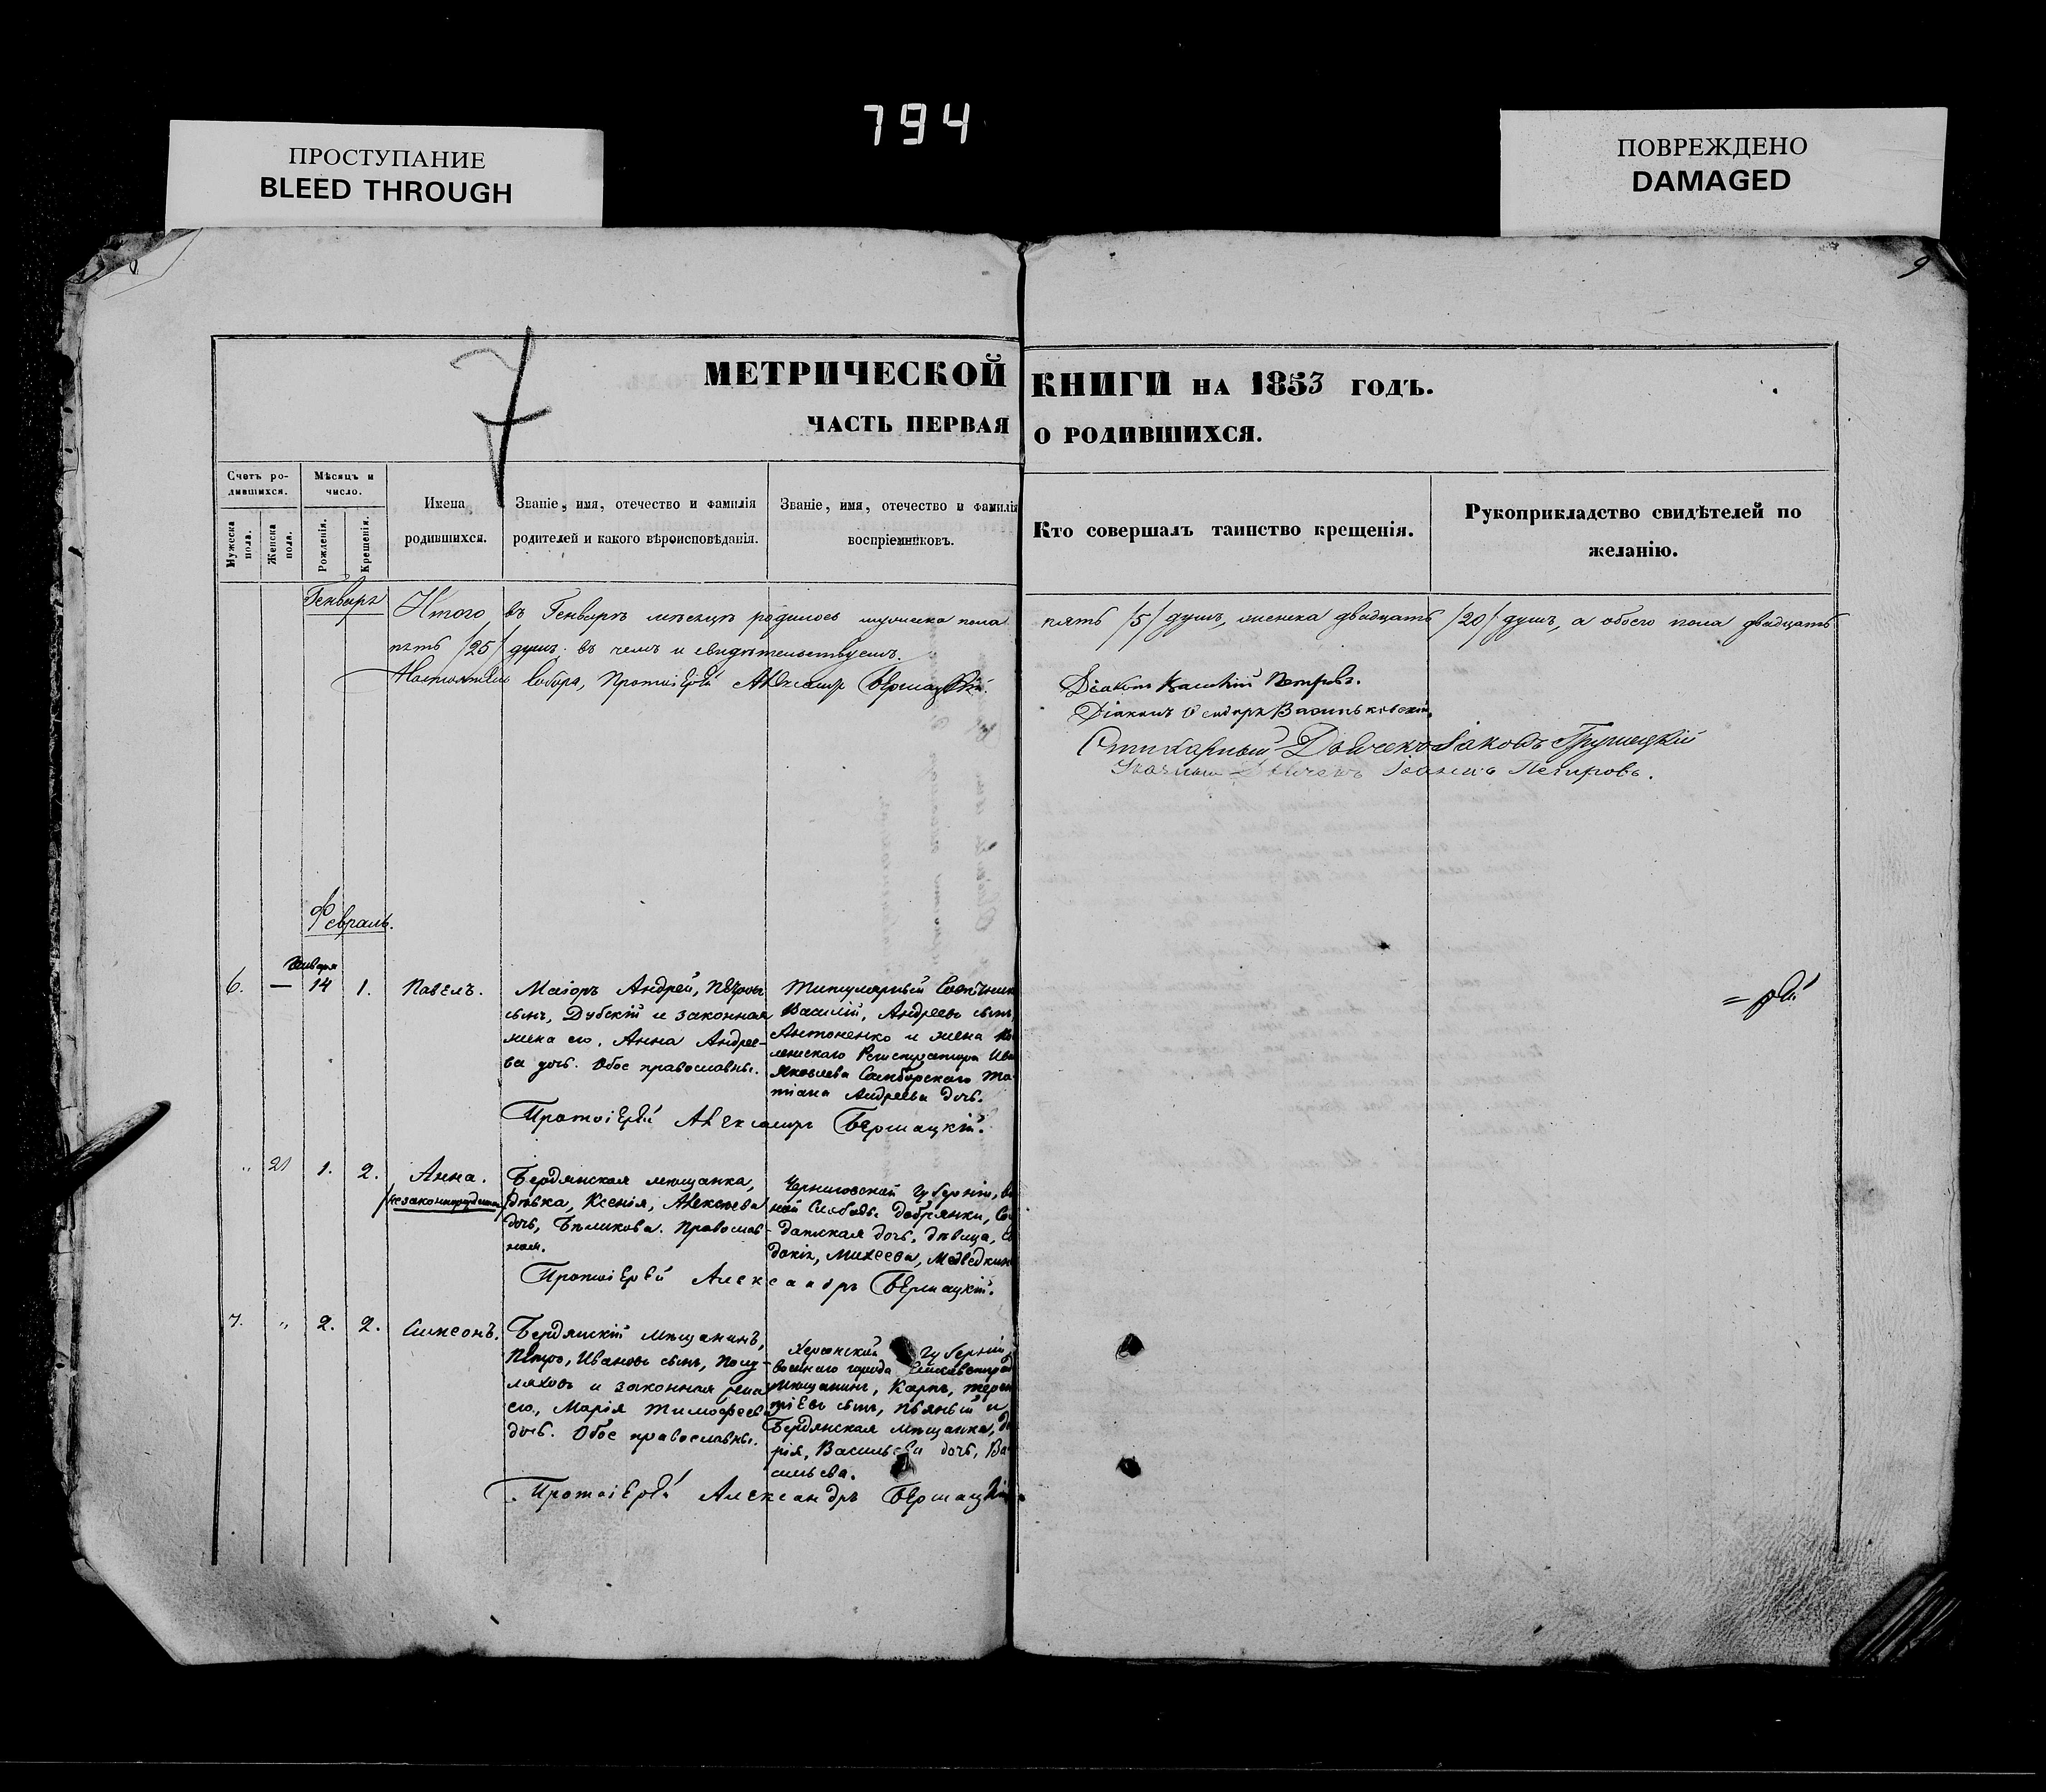 794
ПРОСТУПАНИЕ
BLEED THROUGH
ПОВРЕЖДЕНО
DAMAGED
9
МЕТРИЧЕСКОЙ КНИГИ НА 1853 ГОДЪ.
ЧАСТЬ ПЕРВАЯ О РОДИВШИХСЯ.
Счетъ ро-
дившихся.
Мѣсяцъ и
число.
Мужеска
пола.
Женска
пола.
Рожденія.
Крещенія.
Имена
родившихся.
Званіе, имя, отечество и фамилія
родителей и какого вѣроисповѣданія.
Званіе, имя, отечество и фамилія
воспріемниковъ.
Кто совершалъ таинство крещенія.
Рукоприкладство свидѣтелей по
желанію.
Генварь
Итого въ Генварѣ мѣсяцѣ родилось мужеска пола пять /5/ душъ, женска двадцать /20/ душъ, а обоего пола двадцать
пять /25/ душъ. въ чемъ и свидѣтельствуемъ.
Настоятель Собора, Протоіерей Александръ Бершацкій.
Діаконъ Петровъ.
Діаконъ Васильковскій.
Стихарный Дьячекъ Іаковъ Грушецкій
Дьячекъ Іоаннъ Петровъ.
Февраль.
Января
6. — 14 1. Павелъ.
Маіоръ Андрей, Петровъ
сынъ, Дубскій и законная
жена его, Анна Андрее-
ва дочь. Обое православны.
Титулярный Совѣтникъ
Василій, Андреевъ сынъ,
Антоненко и жена Ко
лежскаго Регистратора Ива
Яковлева Самборскаго Та-
тіана Андреева дочь.
Протоіерей Александръ Бершацкій.
" 21 1. 2. Анна.
/незаконнорожденна/
Бердянская мещанка,
дѣвка, Ксенія, Алексеева
дочь, Бѣликова. Православ-
ная.
Черниговской Губерніи,
Слободы Добрянки, Сол
датская дочь, дѣвица, Ев
докія, Михеева, Медведкин
Протоіерей Александръ Бершацкій.
7. " 2. 2. Симеонъ.
Бердянскій мѣщанинъ,
Петро, Ивановъ сынъ,
и законная жена
его, Марія Тимофеева
дочь. Обое православны.
Херсонской Губерніи,
военнаго города Елисаветград
мѣщанинъ, Карпъ, Терен
тіевъ сынъ, Пьяный и
Бердянская мѣщанка, Да
рія, Васильева дочь, Ва
сильева.
Протоіерей Александръ Бершацкій